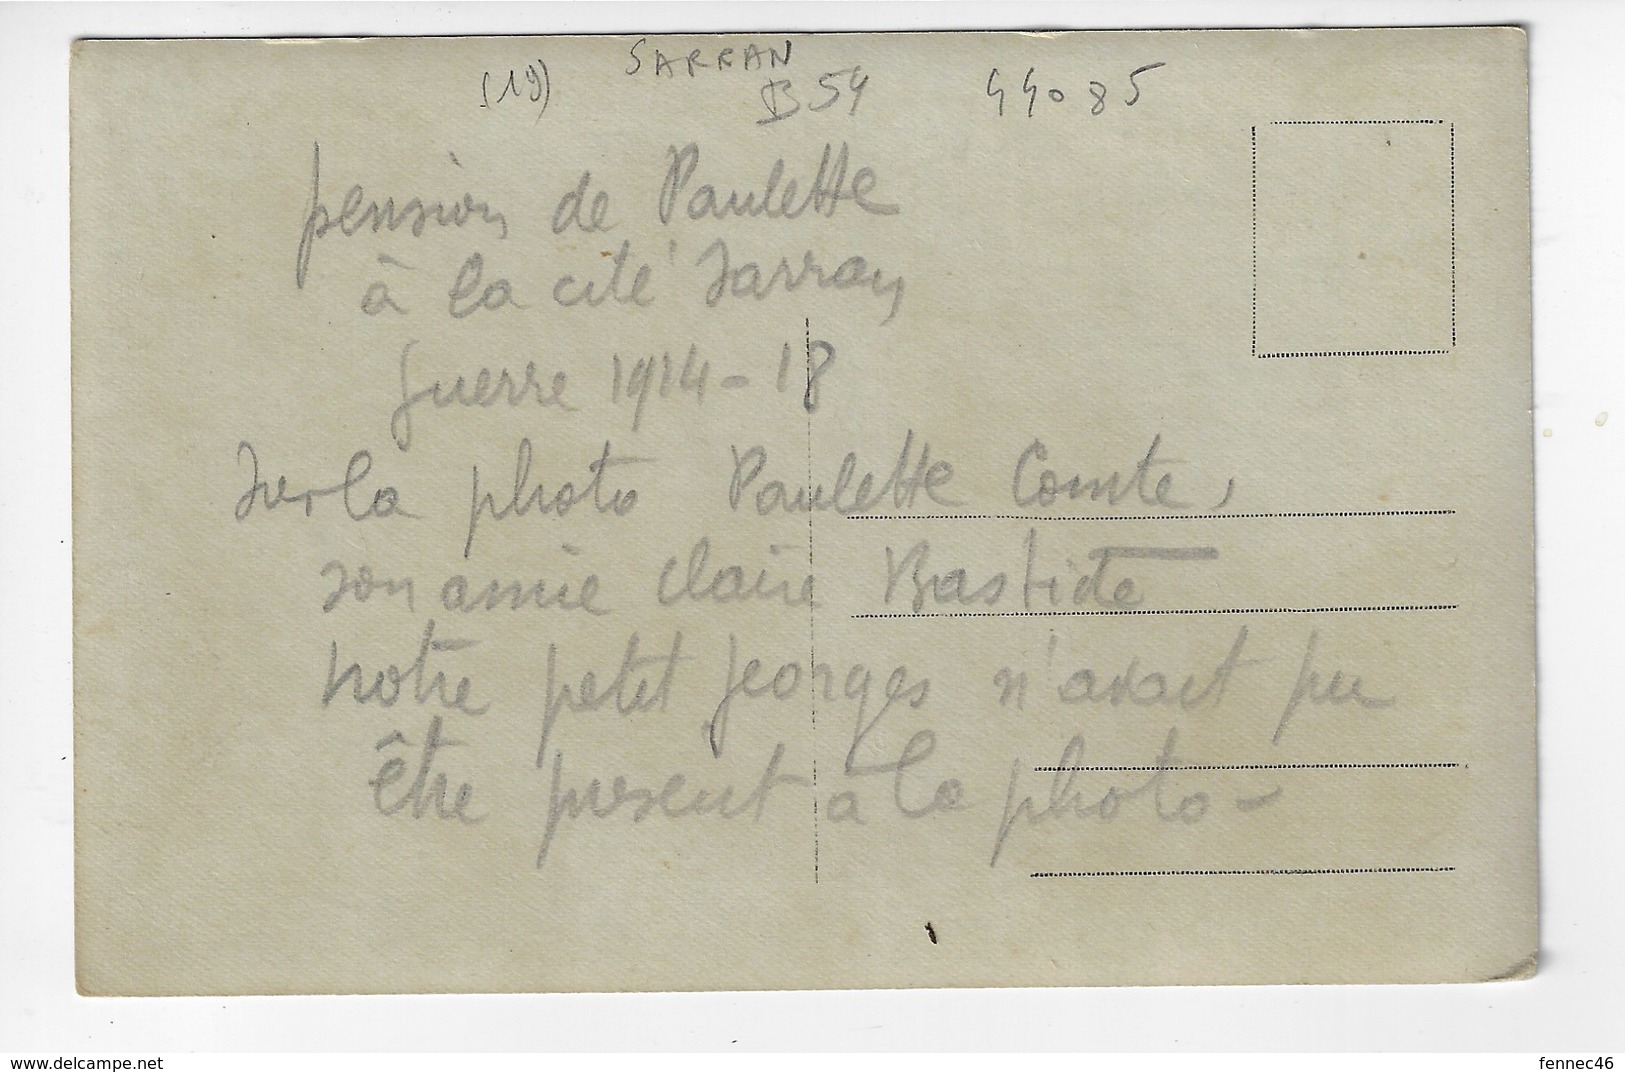 (19) SARRAN
B54 44085
pension de Paulette
à la cité Sarran
guerre 1914-18
Sur la photo Paulette Comte,
son amie Claire Bastide
notre petit georges n'avait pu
être present à la photo -
www.delcampe.net
fennec46